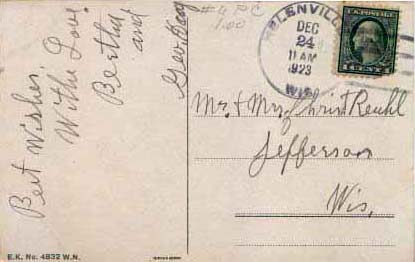 Best Wishes.
With Love
Bertha
and
Geo.
#4 PC
1.00
HELENVILLE
DEC
24
11 AM
1923
WIS.
1 CENT 1
Mr. & Mrs. Christ Reuhl
Jefferson
Wis,
E.K. No. 4832 W.N.